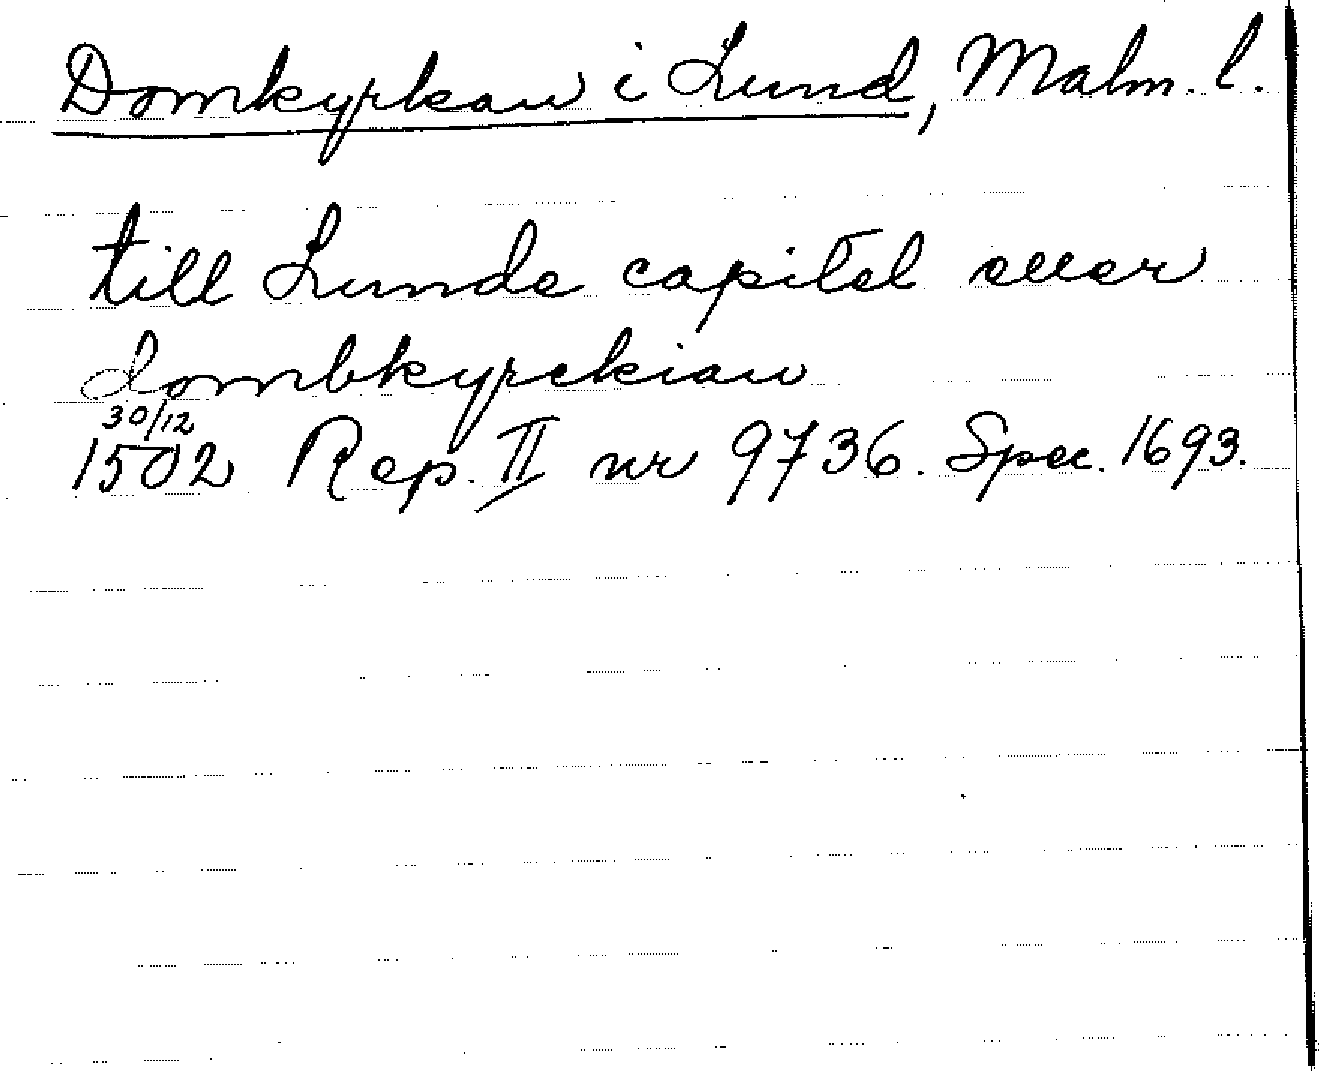 Domkyrkan i Lund, Malm. l.
till Lunde capitel eller
dombkyrckian
30/12
1502 Rep. II nr 9736. Spec. 1693.